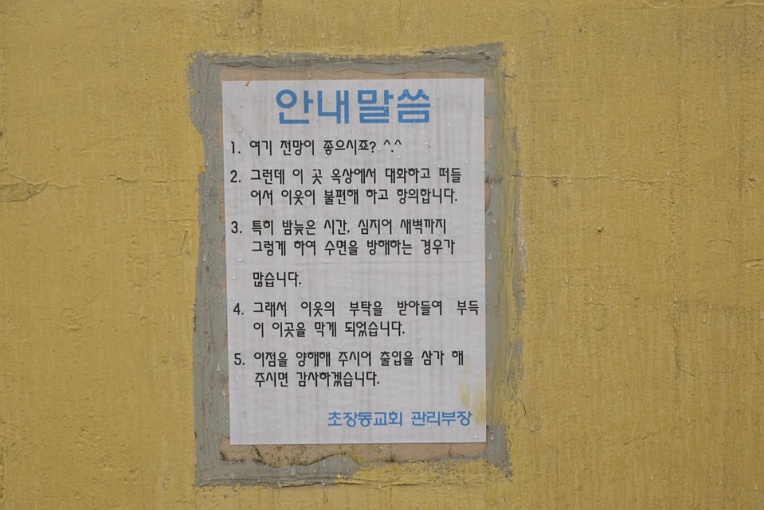 안내말씀
1. 여기 전망이 좋으시죠? ^.^
2. 그런데 이 곳 옥상에서 대화하고 떠들
어서 이웃이 불편해 하고 항의합니다.
3. 특히 밤늦은 시간, 심지어 새벽까지
그렇게 하여 수면을 방해하는 경우가
많습니다.
4. 그래서 이웃의 부탁을 받아들여 부득
이 이곳을 막게 되었습니다.
5. 이점을 양해해 주시어 출입을 삼가 해
주시면 감사하겠습니다.
초장동교회 관리부장